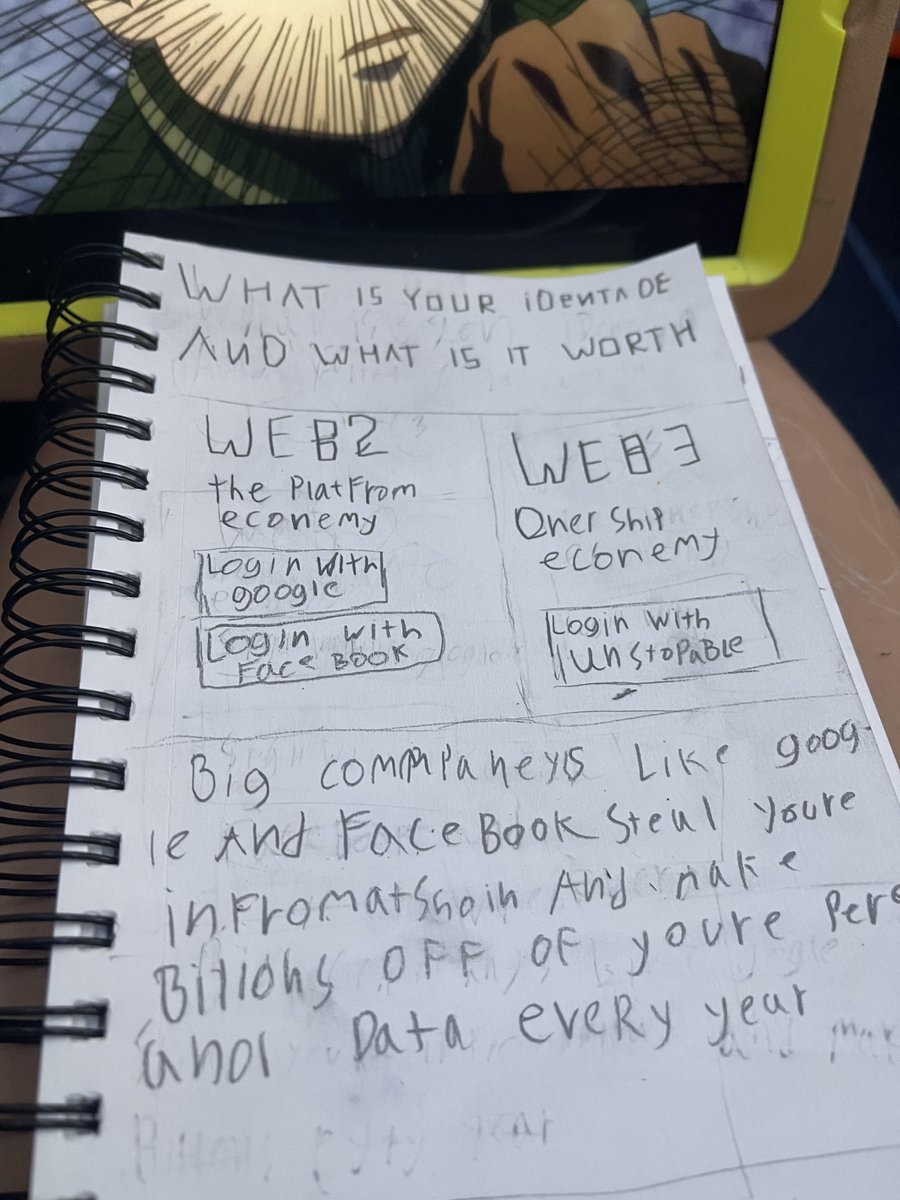 WHAT IS YOUR iDeNTADE
AND WHAT IS IT WORTH
WEB2
the PlatFrom
econemy
Login with
google
Login with
Face BOOK
WEB3
Oner Ship
econemy
Login with
UnstoPaBLe
Big companeys Like goog
le And FaceBook Steal youre
inFromatshoin And make
Bilions OFF OF youre Pers
anol Data eveRy year